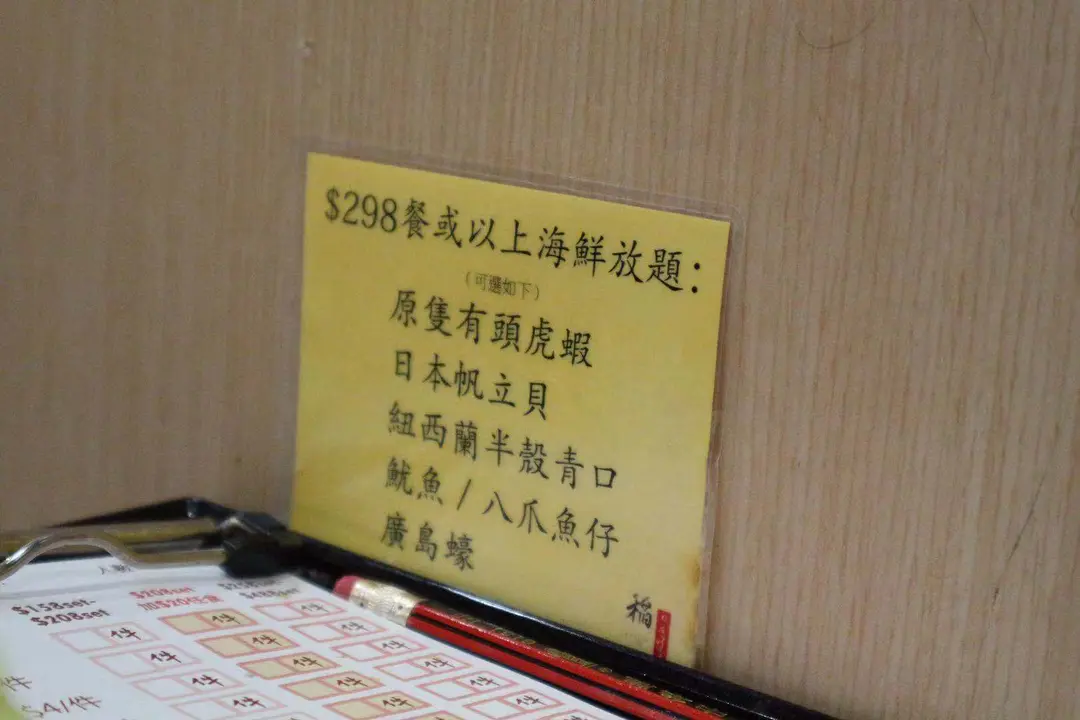 $298餐或以上海鮮放題：
（可選如下）
原隻有頭虎蝦
日本帆立貝
紐西蘭半殼青口
魷魚 / 八爪魚仔
廣島蠔
稲
$158set-
$208set
$208set
件 件 件
件 件 件
件 件 件
件 件 件
$4/件